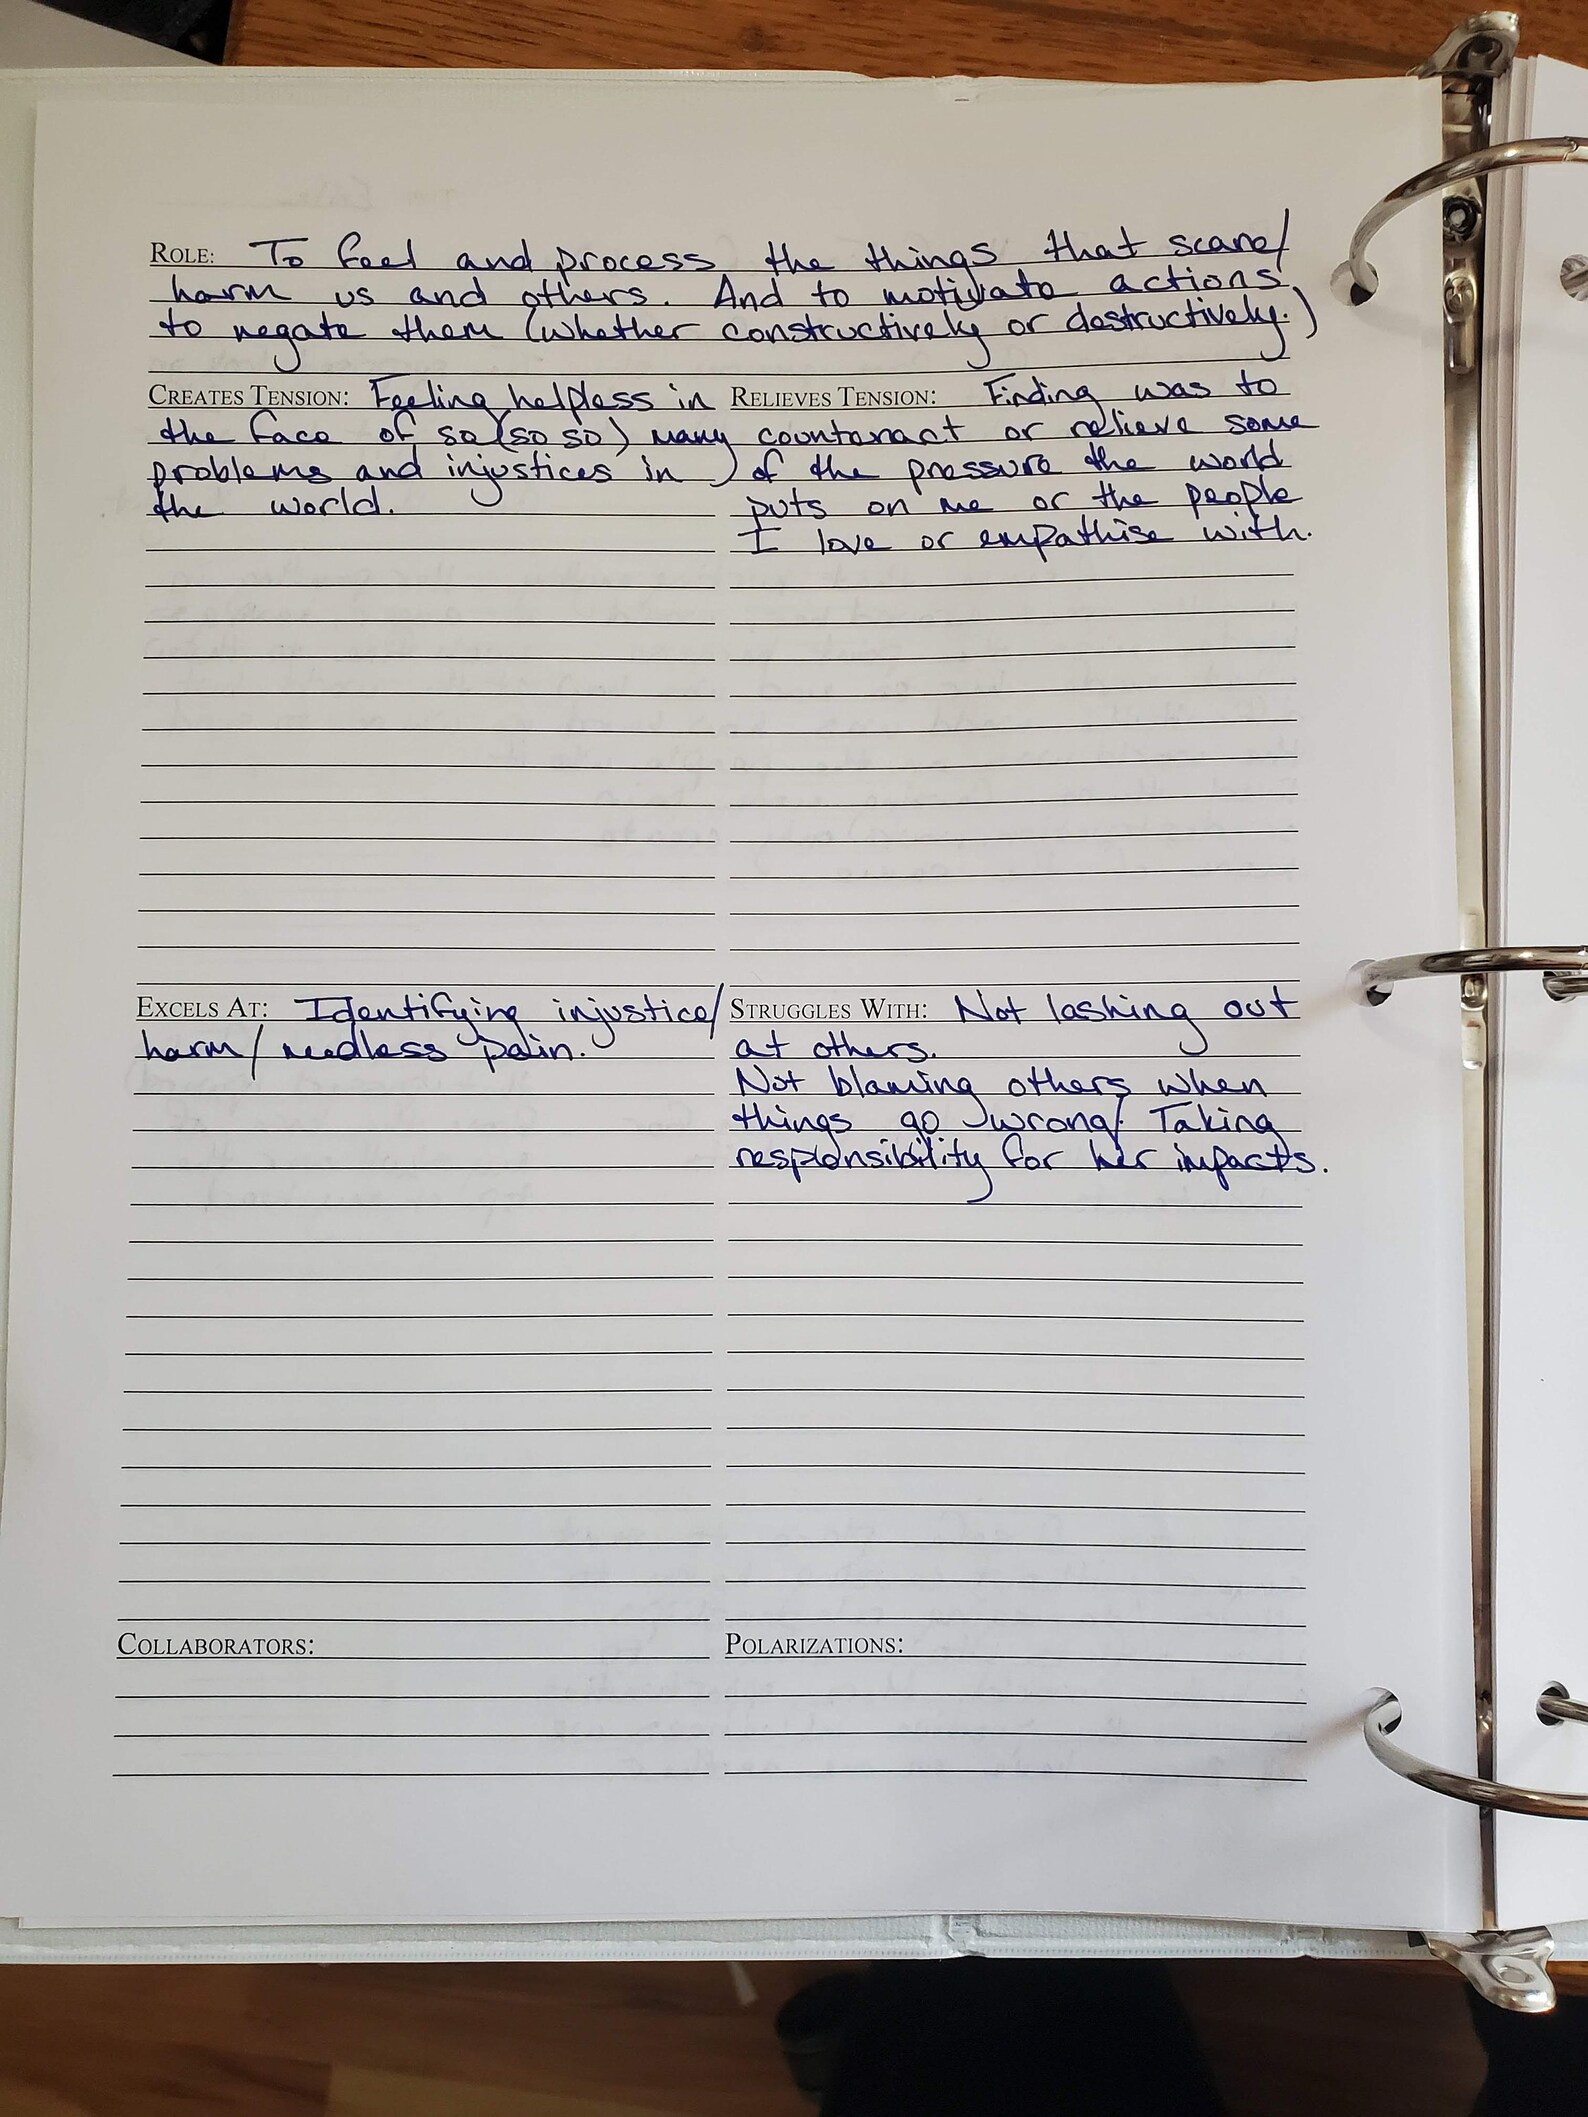 ROLE: To feel and process the things that scare/
harm us and others. And to motivate actions
to negate them (whether constructively or destructively.)
CREATES TENSION: Feeling helpless in
the face of so (so so) many
problems and injustices in
the world.
RELIEVES TENSION: Finding was to
counteract or relieve some
of the pressure the world
puts on me or the people
I love or empathise with.
EXCELS AT: Identifying injustice/
harm/needless pain.
STRUGGLES WITH: Not lashing out
at others.
Not blaming others when
things go wrong/. Taking
responsibility for her impacts.
COLLABORATORS:
POLARIZATIONS: